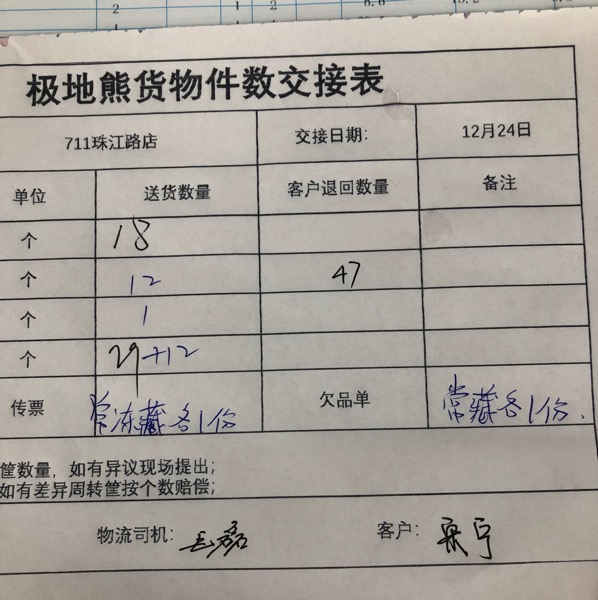 极地熊货物件数交接表
711珠江路店 交接日期: 12月24日
单位 送货数量 客户退回数量 备注
个 18
个 12 47
个 1
个 29+12
传票 常冻藏各1份 欠品单 常藏各1份.
筐数量，如有异议现场提出;
如有差异周转筐按个数赔偿;
物流司机: 毛磊 客户: